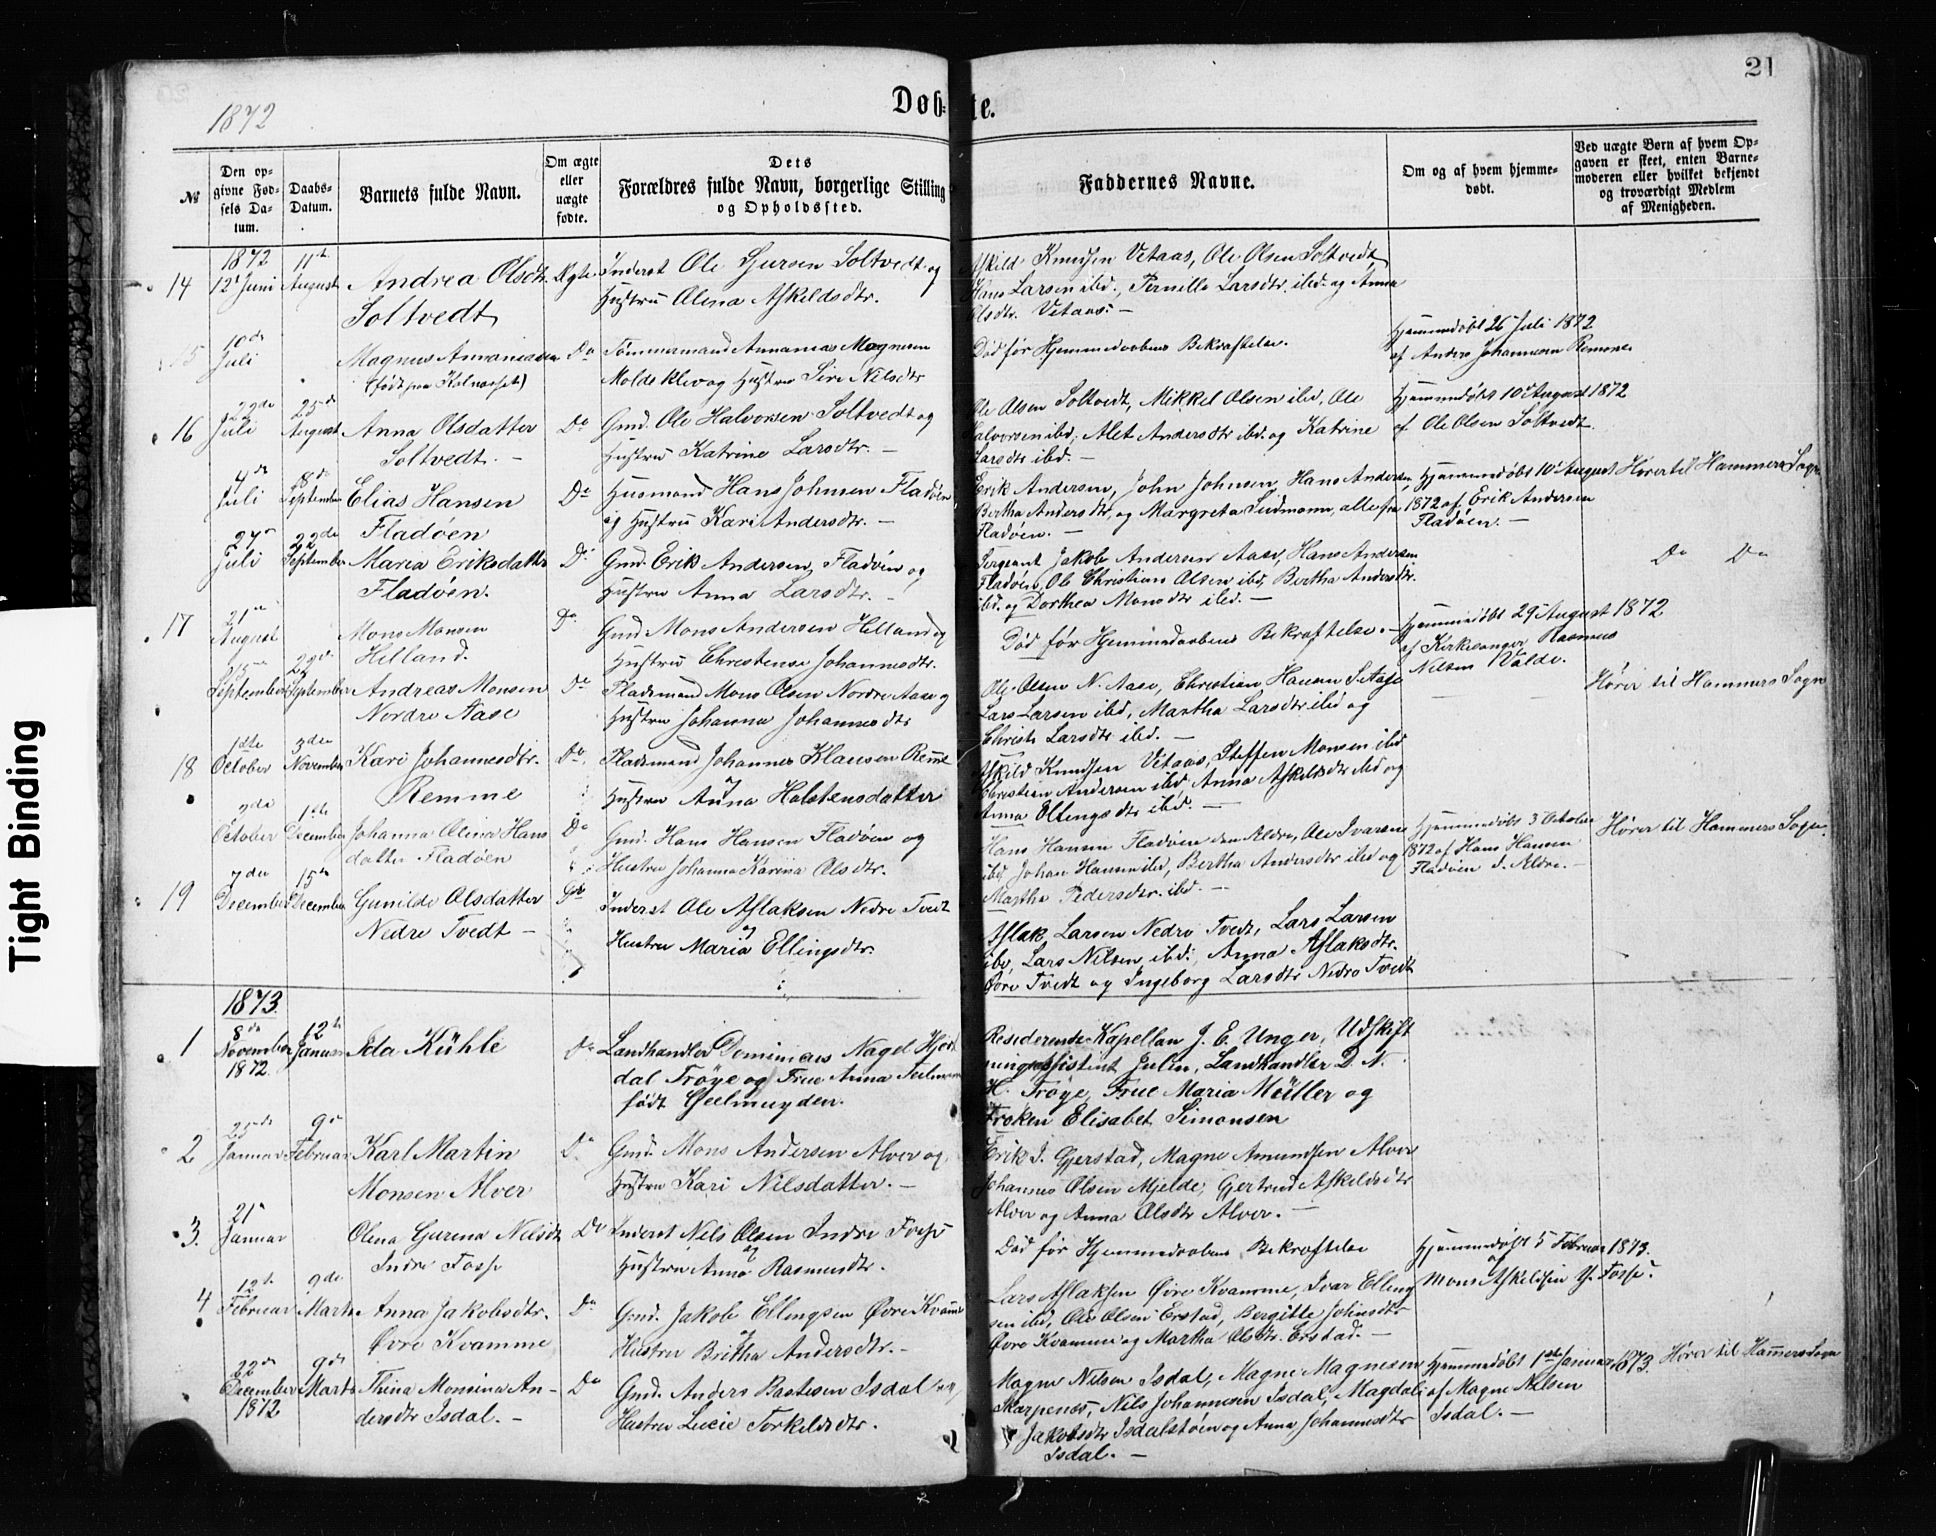 21
1872
Døb- te.
№
Den op-
givne Fød-
sels Da-
tum.
Daabs-
Datum.
Barnets fulde Navn.
Om ægte
eller
uægte
fødte.
Dets
Forældres fulde Navn, borgerlige Stilling
og Opholdssted.
Faddernes Navne.
Om og af hvem hjemme-
døbt.
Ved uægte Børn af hvem Op-
gaven er skeet, enten Barne-
moderen eller hvilket bekjendt
og troværdigt Medlem
af Menigheden.
1872
14 12te Juni 11te August Andrea Olsdtr. Soltvedt Ægte
Inderst Ole Gjursen Soltvedt og
Hustru Olena Askildsdtr.
Askild Knudsen Vetaas, Ole Olsen Soltvedt,
Hans Larsen ibd., Pernille Larsdtr. ibd. og Anna
Olsdtr. Vetaas. —
15 10de Juli Magnus Annaniassen
(født paa Kolnæsset) Do
Tømmermand Annanias Magnesen
Moldeklev og Hustru Siri Nilsdtr
Død før Hjemmedaabens Bekræftelse.
Hjemmedøbt 26 Juli 1872
af Anders Johannesen Remme.
16 22de Juli 25de August Anna Olsdatter
Soltvedt. — Do
Gmd. Ole Halvorsen Soltvedt og
Hustru Katrine Larsdtr. —
Ole Olsen Soltvedt, Mikkel Olsen ibd, Ole
Halvorsen ibd, Alet Andersdtr ibd. og Katrine
Larsdtr ibd. —
Hjemmedøbt 10de August 1872
af Ole Olsen Soltvedt.
4de Juli 8de September Elias Hansen
Fladøen Do
Husmand Hans Johnsen Fladøen
og Hustru Kari Andersdtr. —
Erik Andersen, John Johnsen, Hans Andersen,
Bertha Andersdtr, og Margreta Seidmann, alle fra
Fladøen. —
Hjemmedøbt 10de August
1872 af Erik Andersen
Fladøen. —
Hører til Hammers Sogn
27de Juli 22de September Maria Eriksdatter
Fladøen. Do
Gmd. Erik Andersen Fladøen og
Hustru Anna Larsdtr. —
Sergeant Jakob Andersen Aase, Hans Andersen
Fladøen, Ole Christian Olsen ibd, Bertha Andersdtr.
ibd. og Dorthea Monsdtr ibd. —
Do Do
17 21de August Mons Monsen
Helland. Do
Gmd. Mons Andersen Helland og
Hustru Christense Johannesdtr.
Død før Hjemmedaabens Bekræftelse. —
Hjemmedøbt 29de August 1872
af Kirkesanger Rasmus
Nilsen Valde.
September 22de September Andreas Monsen
Nordre Aase Do
Pladsmand Mons Olsen Nordre Aase og
Hustru Johanna Johannesdtr
Ole Olsen N. Aase, Christian Hansen S. Aase
Lars Larsen ibd, Martha Larsdtr ibd og
Christi Larsdtr ibd. —
Hører til Hammers Sogn
18 1ste October 3die November Kari Johannesdtr.
Remme Do
Pladsmand Johannes Klausen Remme
og
Hustru Anna Halstensdatter
Askild Knudsen Vetaas, Steffen Monsen ibd
Christian Andersen ibd, Anna Askildsdtr ibd og
Anna Ellingsdtr ibd. —
October 1ste December Johanna Olina Hans
datter Fladøen Do
Gmd. Hans Hansen Fladøen og
Hustru Johanna Karina Olsdtr.
Hans Hansen Fladøen den Ældre, Ole Ivarsen
ibd, Johan Hansen ibd, Bertha Andersdtr ibd og
Martha Pedersdtr. ibd. —
Hjemmedøbt 3 October
1872 af Hans Hansen
Fladøen d. Ældre. —
Hører til Hammers Sogn.
19 7de December 15de December Gunilde Olsdatter
Nedre Tvedt — Do
Inderst Ole Aslaksen Nedre Tvedt
og
Hustru Maria Ellingsdtr.
Aslak Larsen Nedre Tvedt, Lars Larsen
ibd, Lars Nilsen ibd., Anna Aslaksdtr.
Øvre Tvedt og Ingeborg Larsdtr Nedre Tvedt
1873.
1 8de November 1872 12te Januar Ida Kühle Do
Landhandler Dominicus Nagel Hjort
dal Trøye og Frue Anna
født Geelmuyden.
Residerende Kapellan J. E. Unger, Udskift
ningsassistent Julin, Landhandler D. N.
H. Trøye, Frue Maria Müller og
Frøken Elisabet Simonsen
2 25de Januar 9de Februar Karl Martin
Monsen Alver Do
Gmd. Mons Andersen Alver og
Hustru Kari Nilsdatter. —
Erik J. Gjerstad, Magne Amundsen Alver
Johannes Olsen Mjelde, Gjertrud Askildsdtr
Alver og Anna Olsdtr Alver. —
3. 21de Januar Olena Gurina Nilsdtr
Indre Fosse Do
Inderst Nils Olsen Indre Fosse
og
Hustru Anna Rasmusdtr.
Død før Hjemmedaabens Bekræftelse
Hjemmedøbt 5 Februar 1873.
af
Mons Askildsen Y. Fosse.
4 12te Februar 9de Marts Anna Jakobsdtr.
Øvre Kvamme Do
Gmd. Jakob Ellingsen Øvre Kvamme
og
Hustru Britha Andersdtr. —
Lars Aslaksen Øvre Kvamme, Ivar Elling
sen ibd, Ole Olsen Erstad, Bergitte Johnsdtr
Øvre Kvamme og Martha Olsdtr. Erstad. —
22de December 1872 9de Marts Thina Monsina An-
dersdtr Isdal. — Do
Gmd. Anders Bastesen Isdal og
Hustru Lucie Torkildsdtr.
Magne Nilsen Isdal, Magne Magnesen
Skarpenes, Nils Johannesen Isdal, Magdali
Jakobsdtr Isdalstøen og Anna Johannesdtr
Isdal. —
Hjemmedøbt 1ste Januar 1873.
af Magne Nilsen
Isdal. —
Hører til Hammers Sogn
Tight Binding